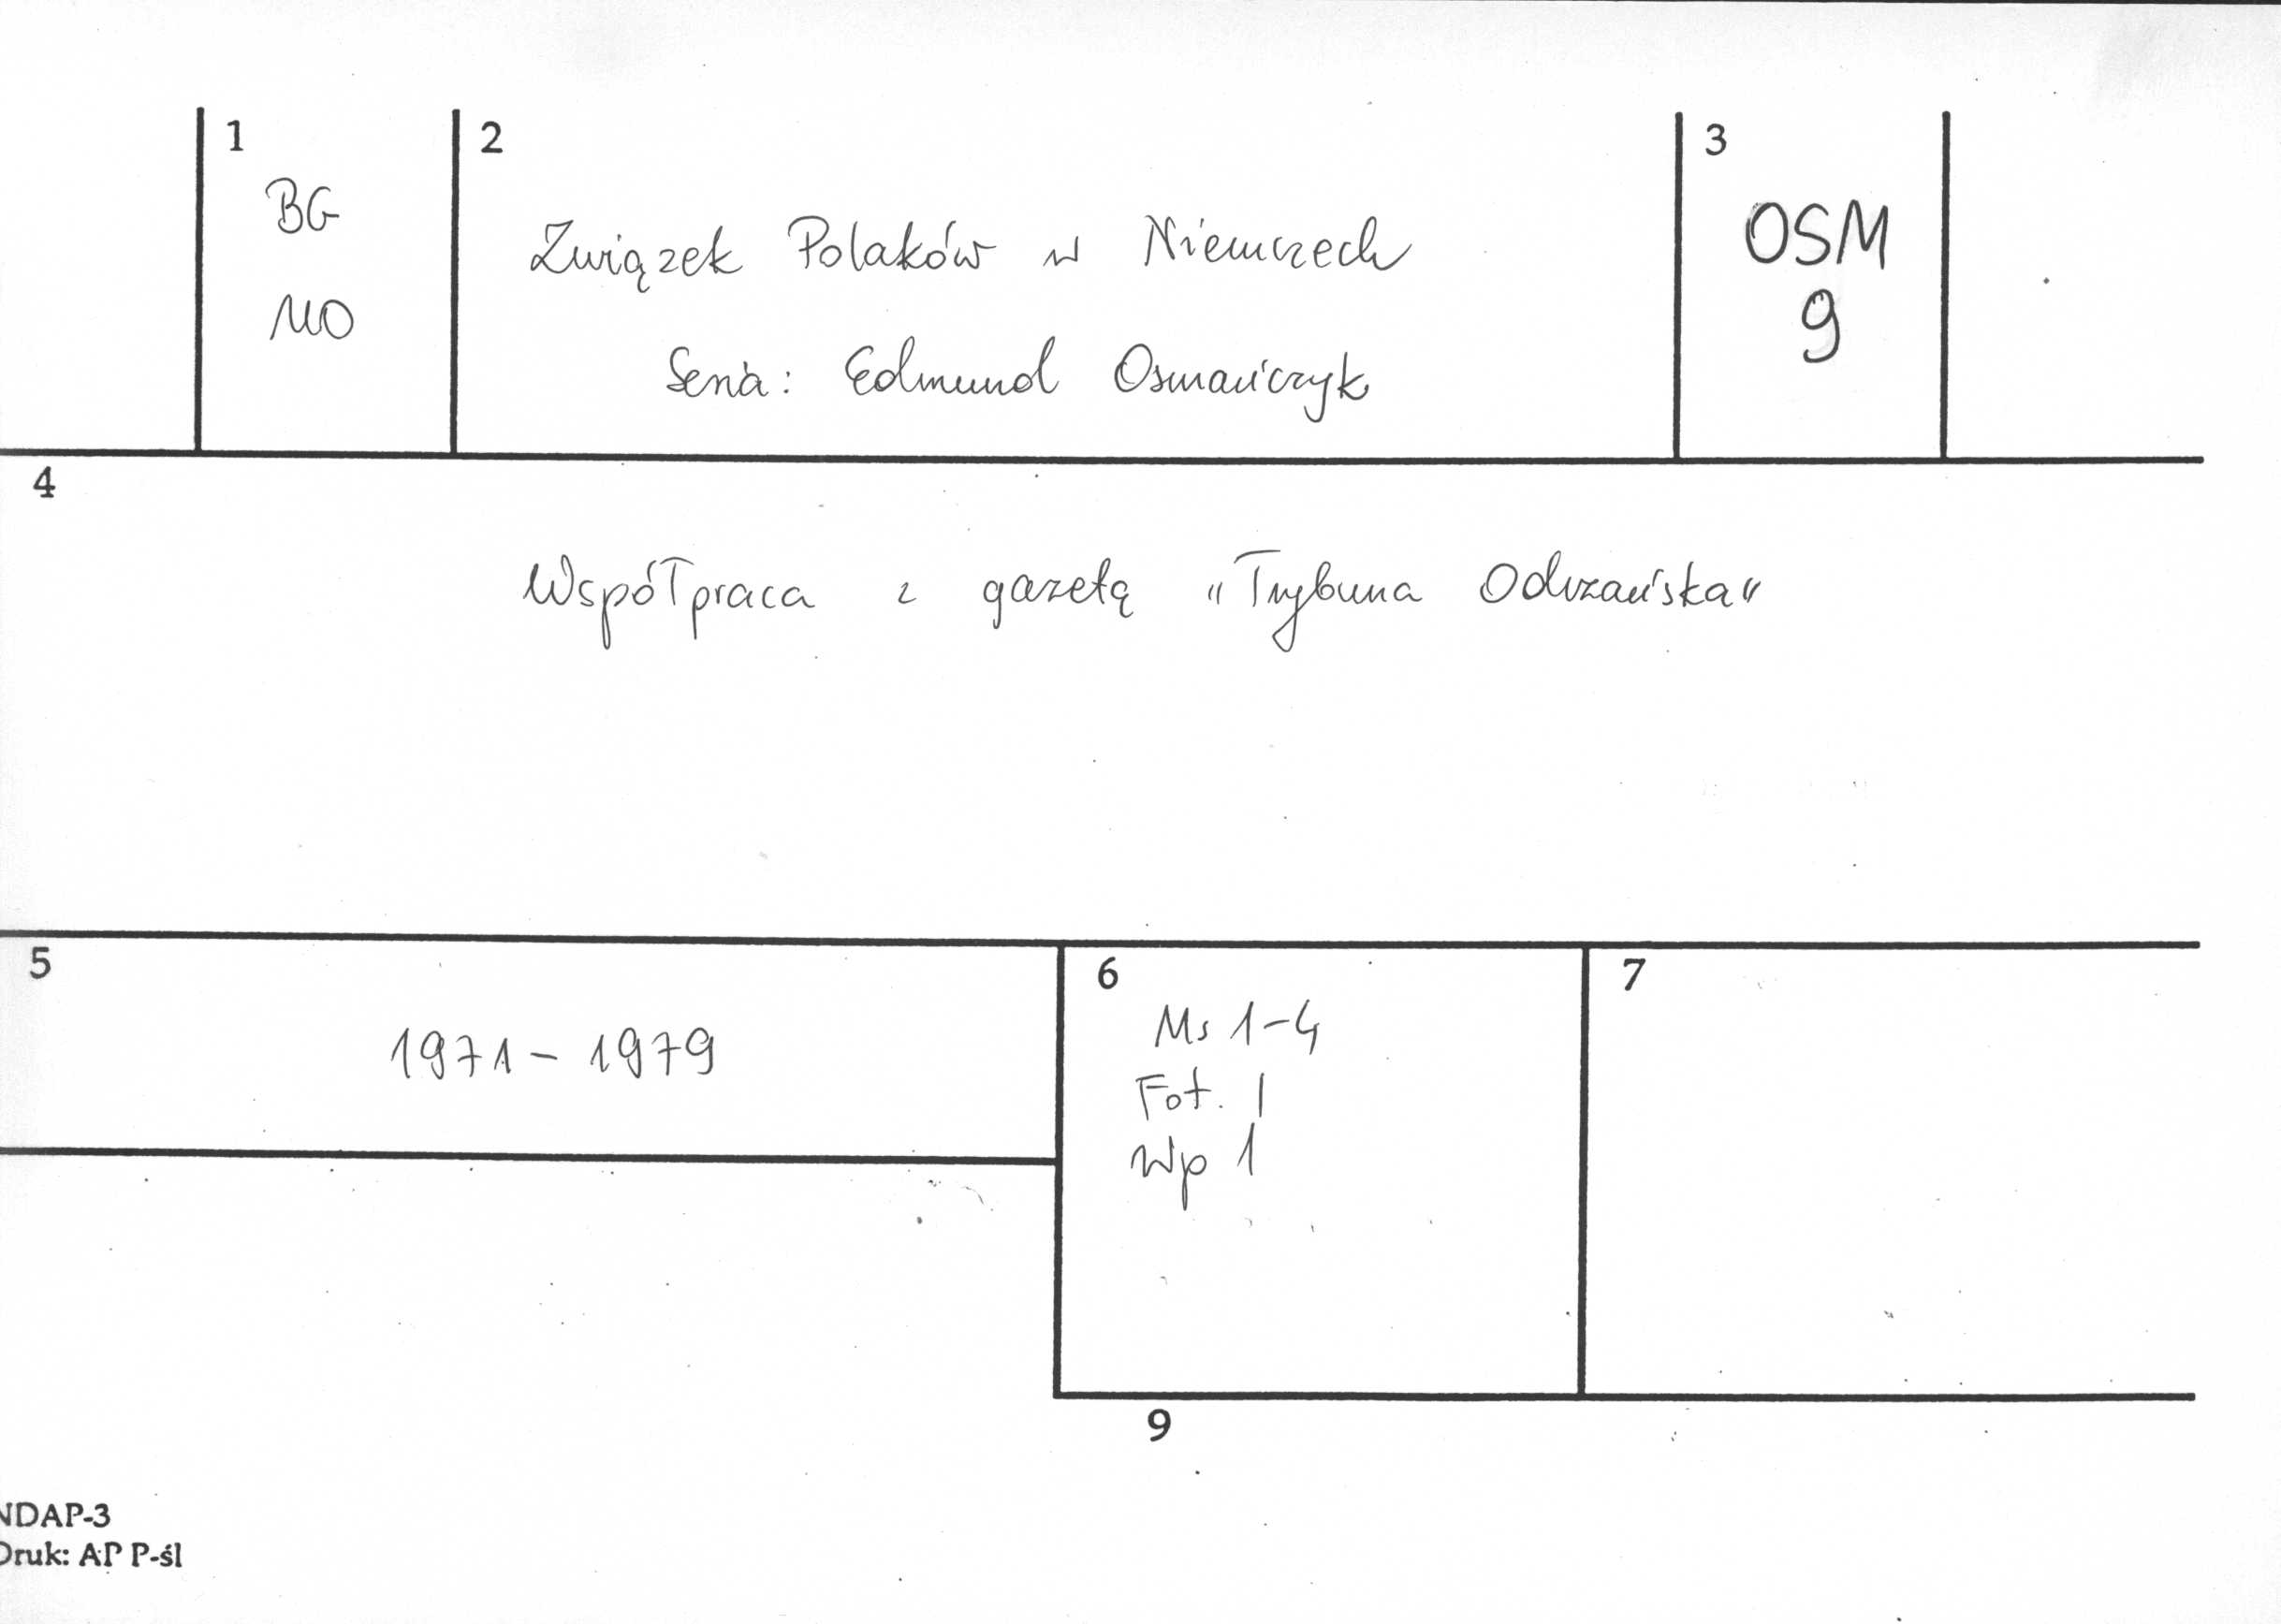 1
BG
MO
2
Związek Polaków w Niemczech
Seria: Edmund Osmańczyk
3
OSM
9
4
Współpraca z gazetą "Trybuna Odrzańska"
5
1971-1979
6
Ms 1-4
Fot. 1
Wp 1
7
9
NDAP-3
Druk: AP P-śl